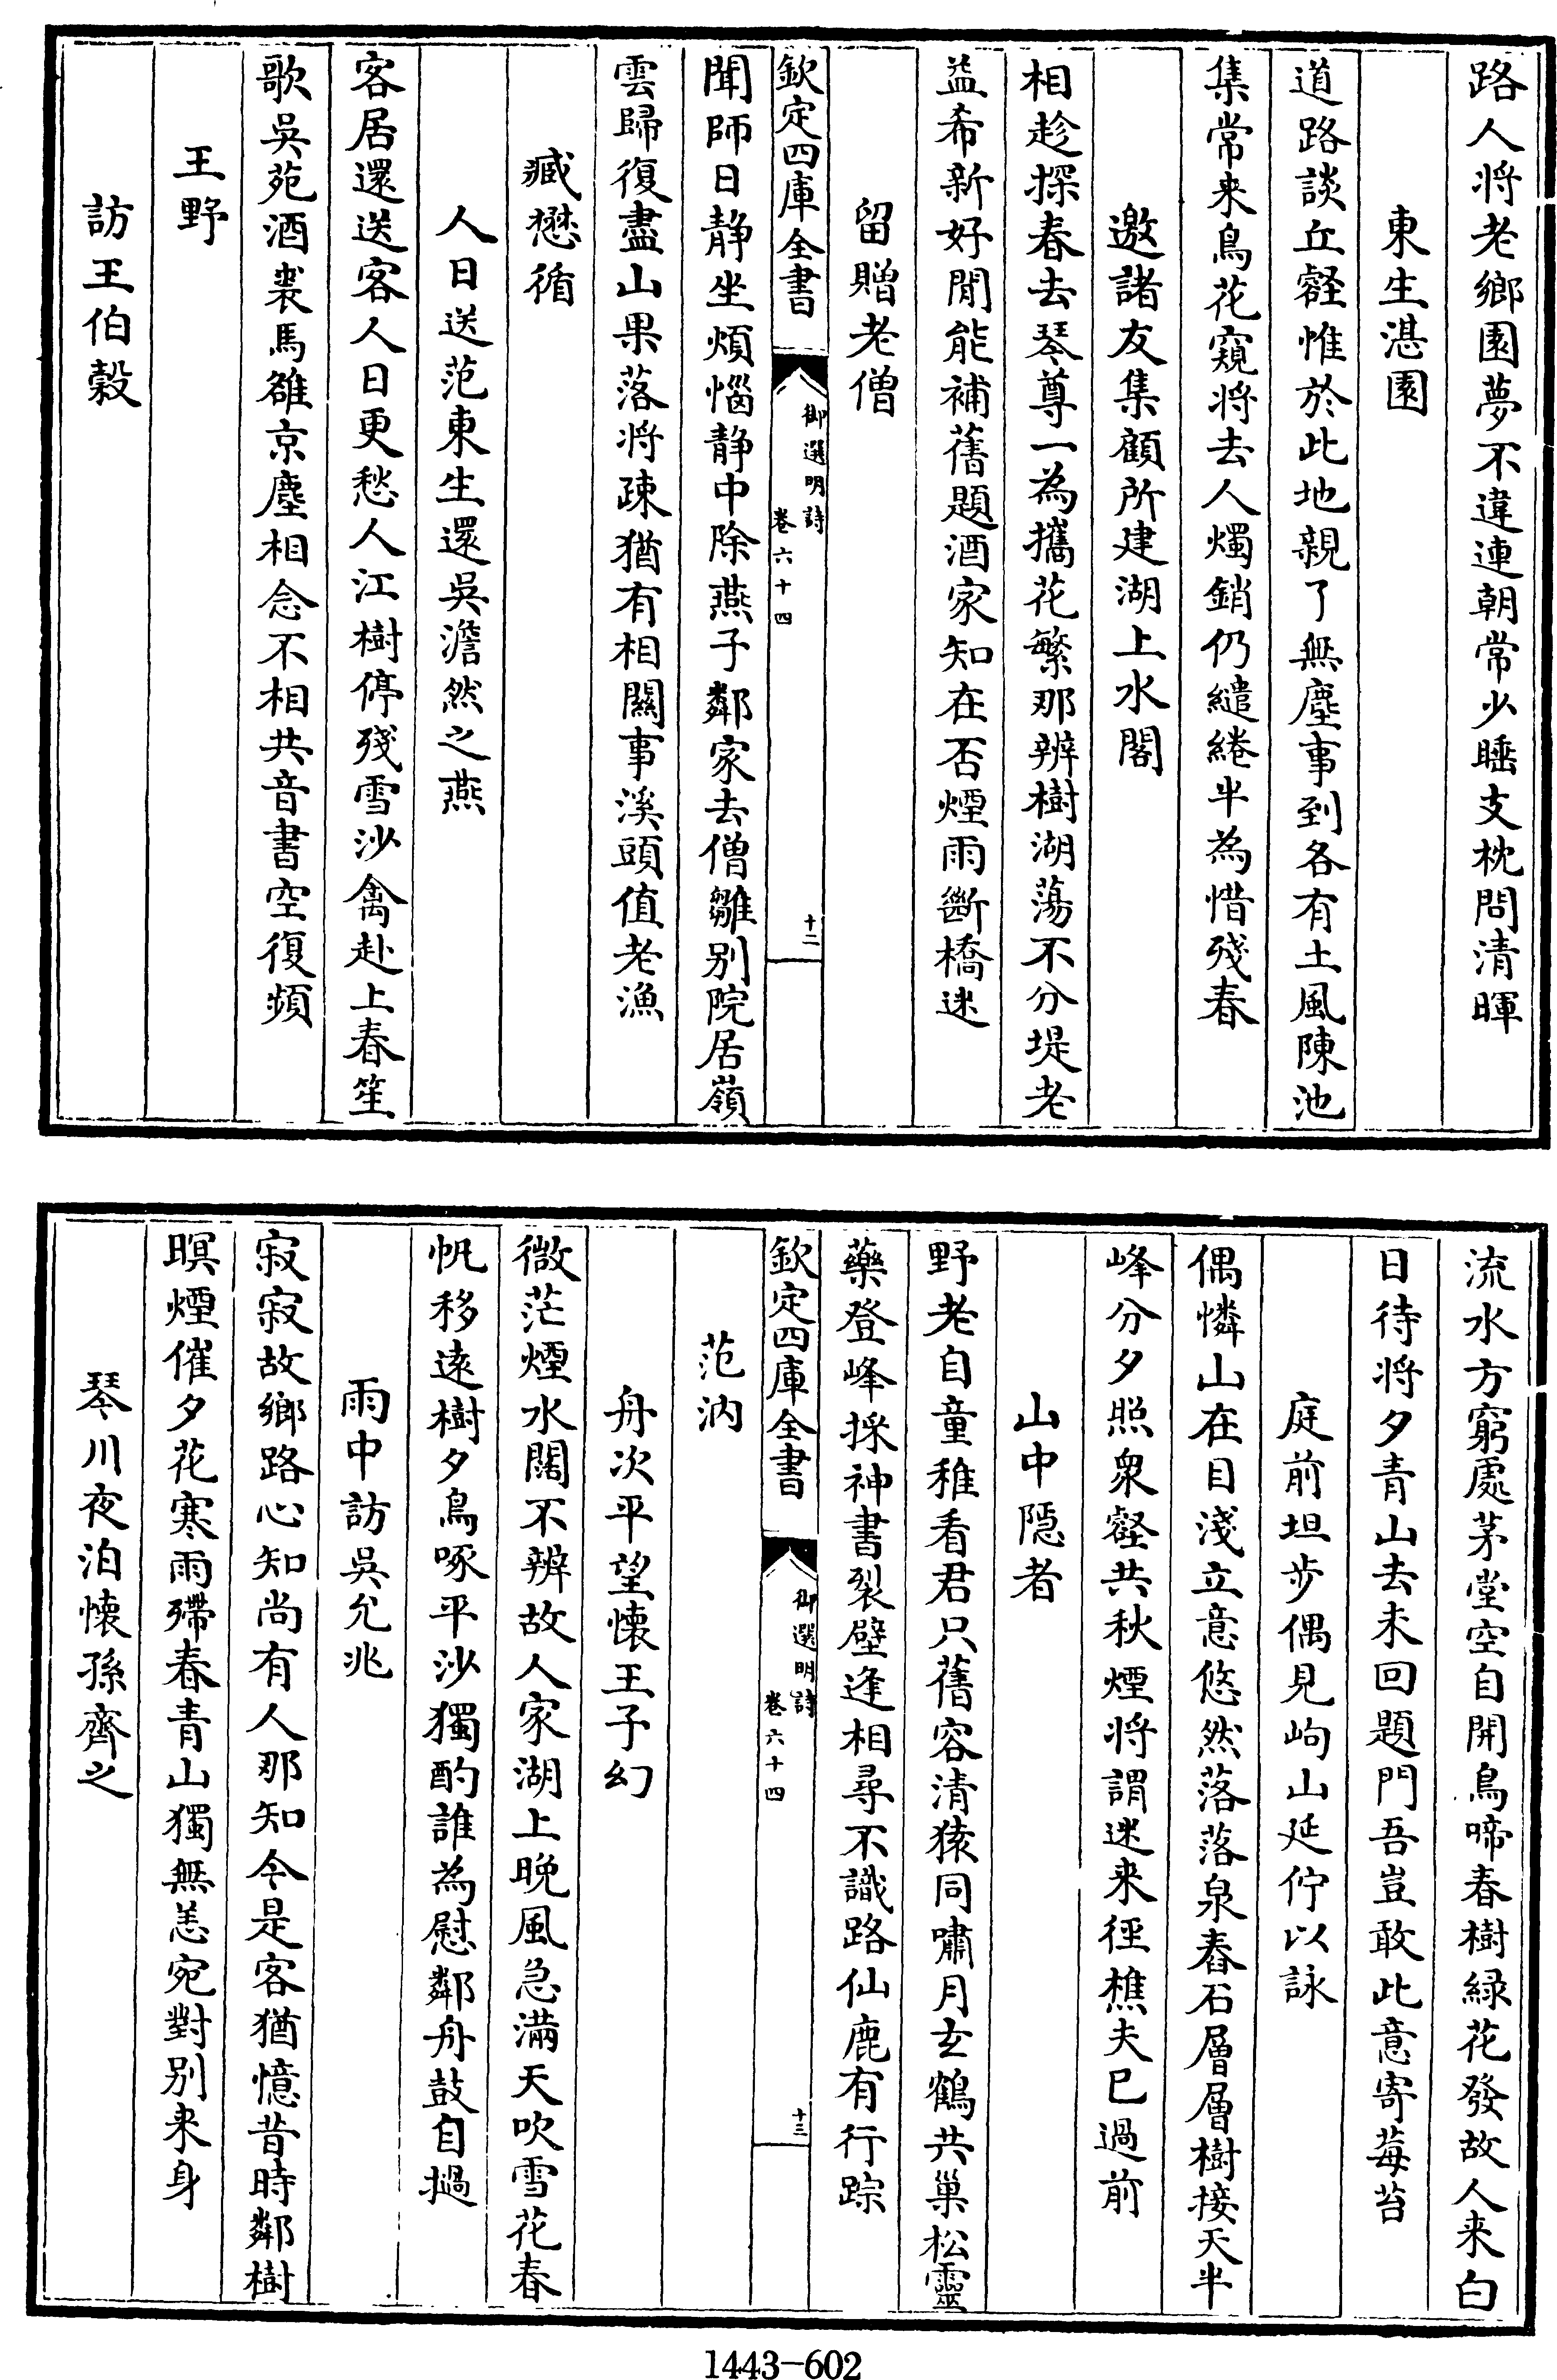 路人將老鄉園夢不違連朝常少睡支枕問清暉
東生湛園
道路談丘壑惟於此地親了無塵事到各有土風陳池
集常来鳥花窺将去人燭銷仍繾綣半為惜殘春
邀諸友集顧所建湖上水閣
相趁探春去琴尊一為攜花繁那辨樹湖蕩不分堤老
益希新好閒能補舊題酒家知在否煙雨斷橋迷
留贈老僧
欽定四庫全書
御選明詩
卷六十四
十二
聞師日静坐煩惱静中除燕子鄰家去僧雛别院居嶺
雲歸復盡山果落将疎猶有相關事溪頭值老漁
臧懋循
人日送范東生還吳澹然之燕
客居還送客人日更愁人江樹停殘雪沙禽赴上春笙
歌吳苑酒裘馬雒京塵相念不相共音書空復頻
王野
訪王伯穀
流水方窮處茅堂空自開鳥啼春樹緑花發故人来白
日待将夕青山去未回題門吾豈敢此意寄莓苔
庭前坦步偶見岣山延佇以詠
偶憐山在目淺立意悠然落落泉舂石層層樹接天半
峰分夕照衆壑共秋煙将謂迷来徑樵夫已過前
山中隠者
野老自童稚看君只舊容清猿同嘯月玄鶴共巢松靈
藥登峰採神書裂壁逢相尋不識路仙鹿有行踪
欽定四庫全書
御選明詩
卷六十四
十三
范汭
舟次平望懷王子幻
微茫煙水闊不辨故人家湖上晚風急滿天吹雪花春
帆移遠樹夕鳥啄平沙獨酌誰為慰鄰舟鼓自撾
雨中訪吳允兆
寂寂故鄉路心知尚有人那知今是客猶憶昔時鄰樹
暝煙催夕花寒雨殢春青山獨無恙宛對别来身
琴川夜泊懷孫齊之
1443-602